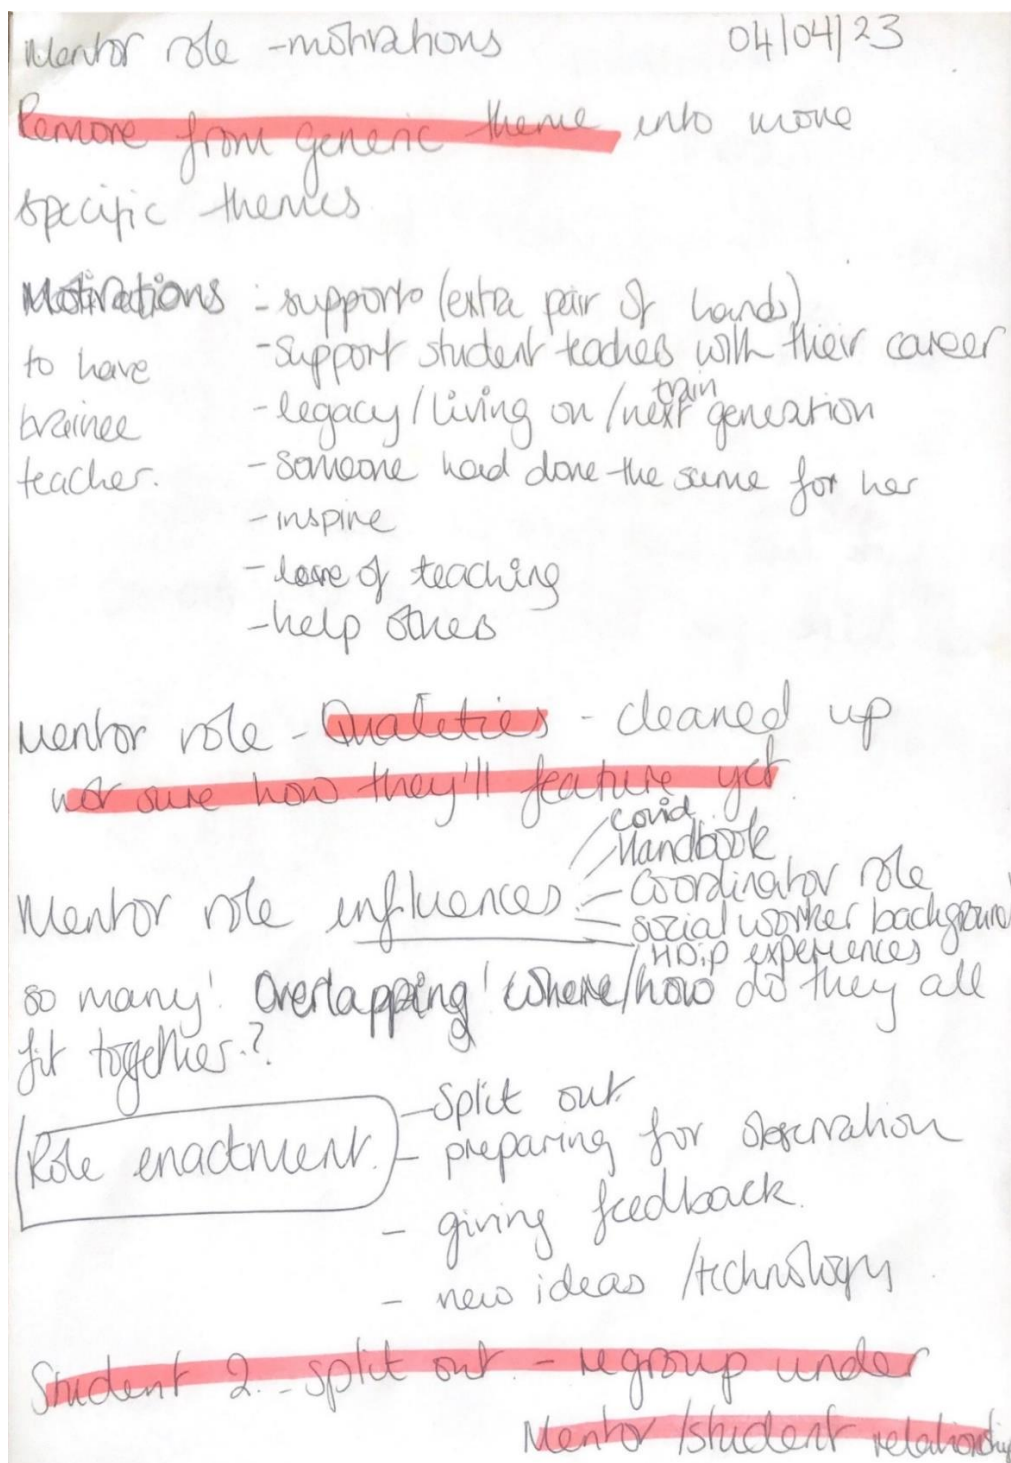 Mentor role - motivations 04/04/23
Remove from generic theme into more
specific themes
Motivations - support (extra pair of hands)
to have - support student teachers with their career
trainee - legacy / living on / train next generation
teacher. - someone had done the same for her
- inspire
- love of teaching
- help others
Mentor role - Qualities - cleaned up
not sure how they'll feature yet
covid
Handbook
Mentor role influences - Coordinator role
- social worker background
HDip experiences
so many! Overlapping! Where/how do they all
fit together?
Role enactment. - Split out.
- preparing for observation
- giving feedback.
- new ideas / technology
Student 2 - split out - regroup under
Mentor / student relationship